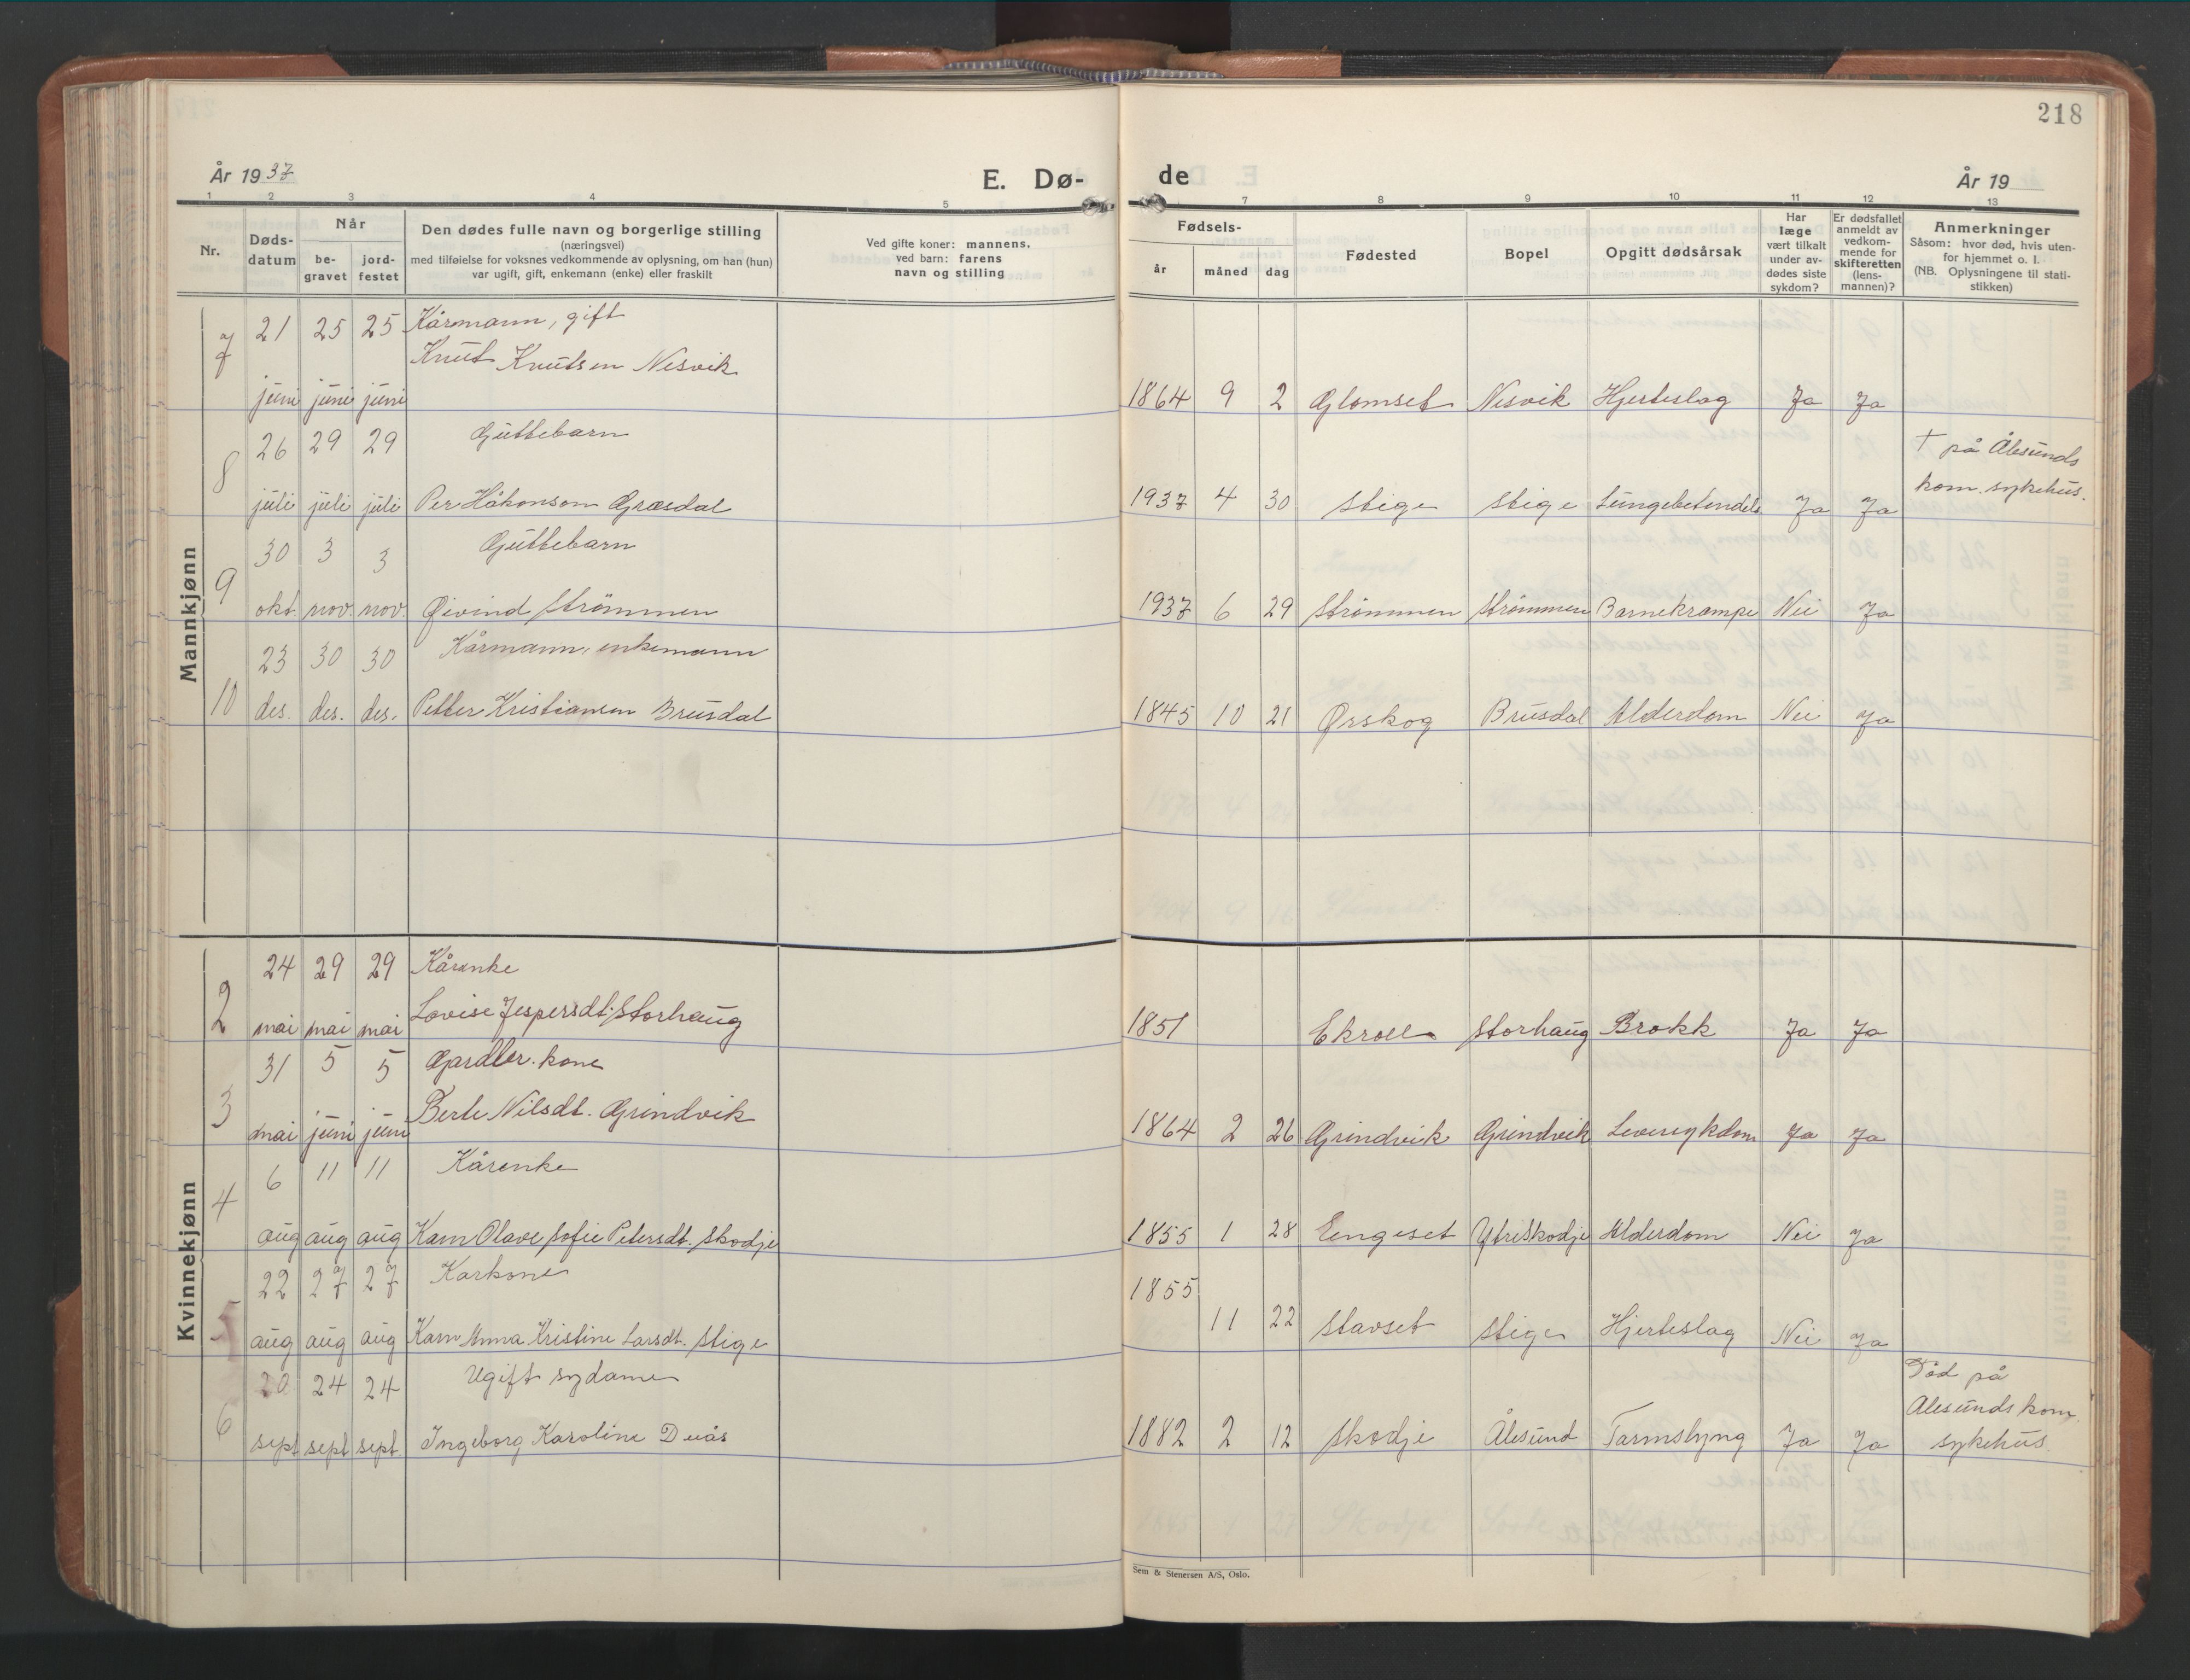 218
År 1937
E. Dø-
de
År 19
1 2 3 4 5 7 8 9 10 11 12 13
Nr.
Døds-
datum
Når
be-
gravet
jord-
festet
Den dødes fulle navn og borgerlige stilling
(næringsvei)
med tilføielse for voksnes vedkommende av oplysning, om han (hun)
var ugift, gift, enkemann (enke) eller fraskilt
Ved gifte koner: mannens,
ved barn: farens
navn og stilling
Fødsels-
år måned dag
Fødested
Bopel
Opgitt dødsårsak
Har
læge
vært tilkalt
under av-
dødes siste
sykdom?
Er dødsfallet
anmeldt av
vedkom-
mende for
skifteretten
(lens-
mannen)?
Anmerkninger
Såsom: hvor død, hvis uten-
for hjemmet o. l.
(NB. Oplysningene til stati-
stikken)
Mannkjønn
7 21 25 25 Kårmann, gift
Knut Knutsen Nesvik
juni juni juni 1864 9 2 Glomset Nesvik Hjerteslag Ja Ja
8 26 29 29 Guttebarn † på Ålesunds
juli juli juli Per Håkonson Græsdal 1937 4 30 Stige Stige Lungebetendels Ja Ja kom. sykehus.
9 30 3 3 Guttebarn
okt. nov. nov. Øivind Strömmen 1937 6 29 Strömmen Strömmen Barnekrampe Nei Ja
10 23 30 30 Kårmann, enkemann
des. des. des. Petter Kristiansen Brusdal 1845 10 21 Ørskog Brusdal Alderdom Nei Ja
Kvinnekjønn
2 24 29 29 Kårenke
mai mai mai Lovise Jespersdt. Storhaug 1851 Ekroll Storhaug Brokk Ja Ja
3 31 5 5 Gardbr. kone
mai juni juni Berte Nilsdt. Grindvik 1864 2 26 Grindvik Grindvik Leversykdom Ja Ja
4 6 11 11 Kårenke
aug aug aug Karn Olave Sofie Petersdt. Skodje 1855 1 28 Engeset Ytre Skodje Alderdom Nei Ja
5 22 27 27 Karkone 1855
aug aug aug Karn Anna Kristine Larsdt. Stige 11 22 Stavset Stige Hjerteslag Nei Ja
6 20 24 24 Ugift sydame Död på
Ålesunds kom.
sept sept sept. Ingeborg Karoline Devås 1882 2 12 Skodje Ålesund Tarmslyng Ja Ja sykehus.
Sem & Stenersen A/S, Oslo.